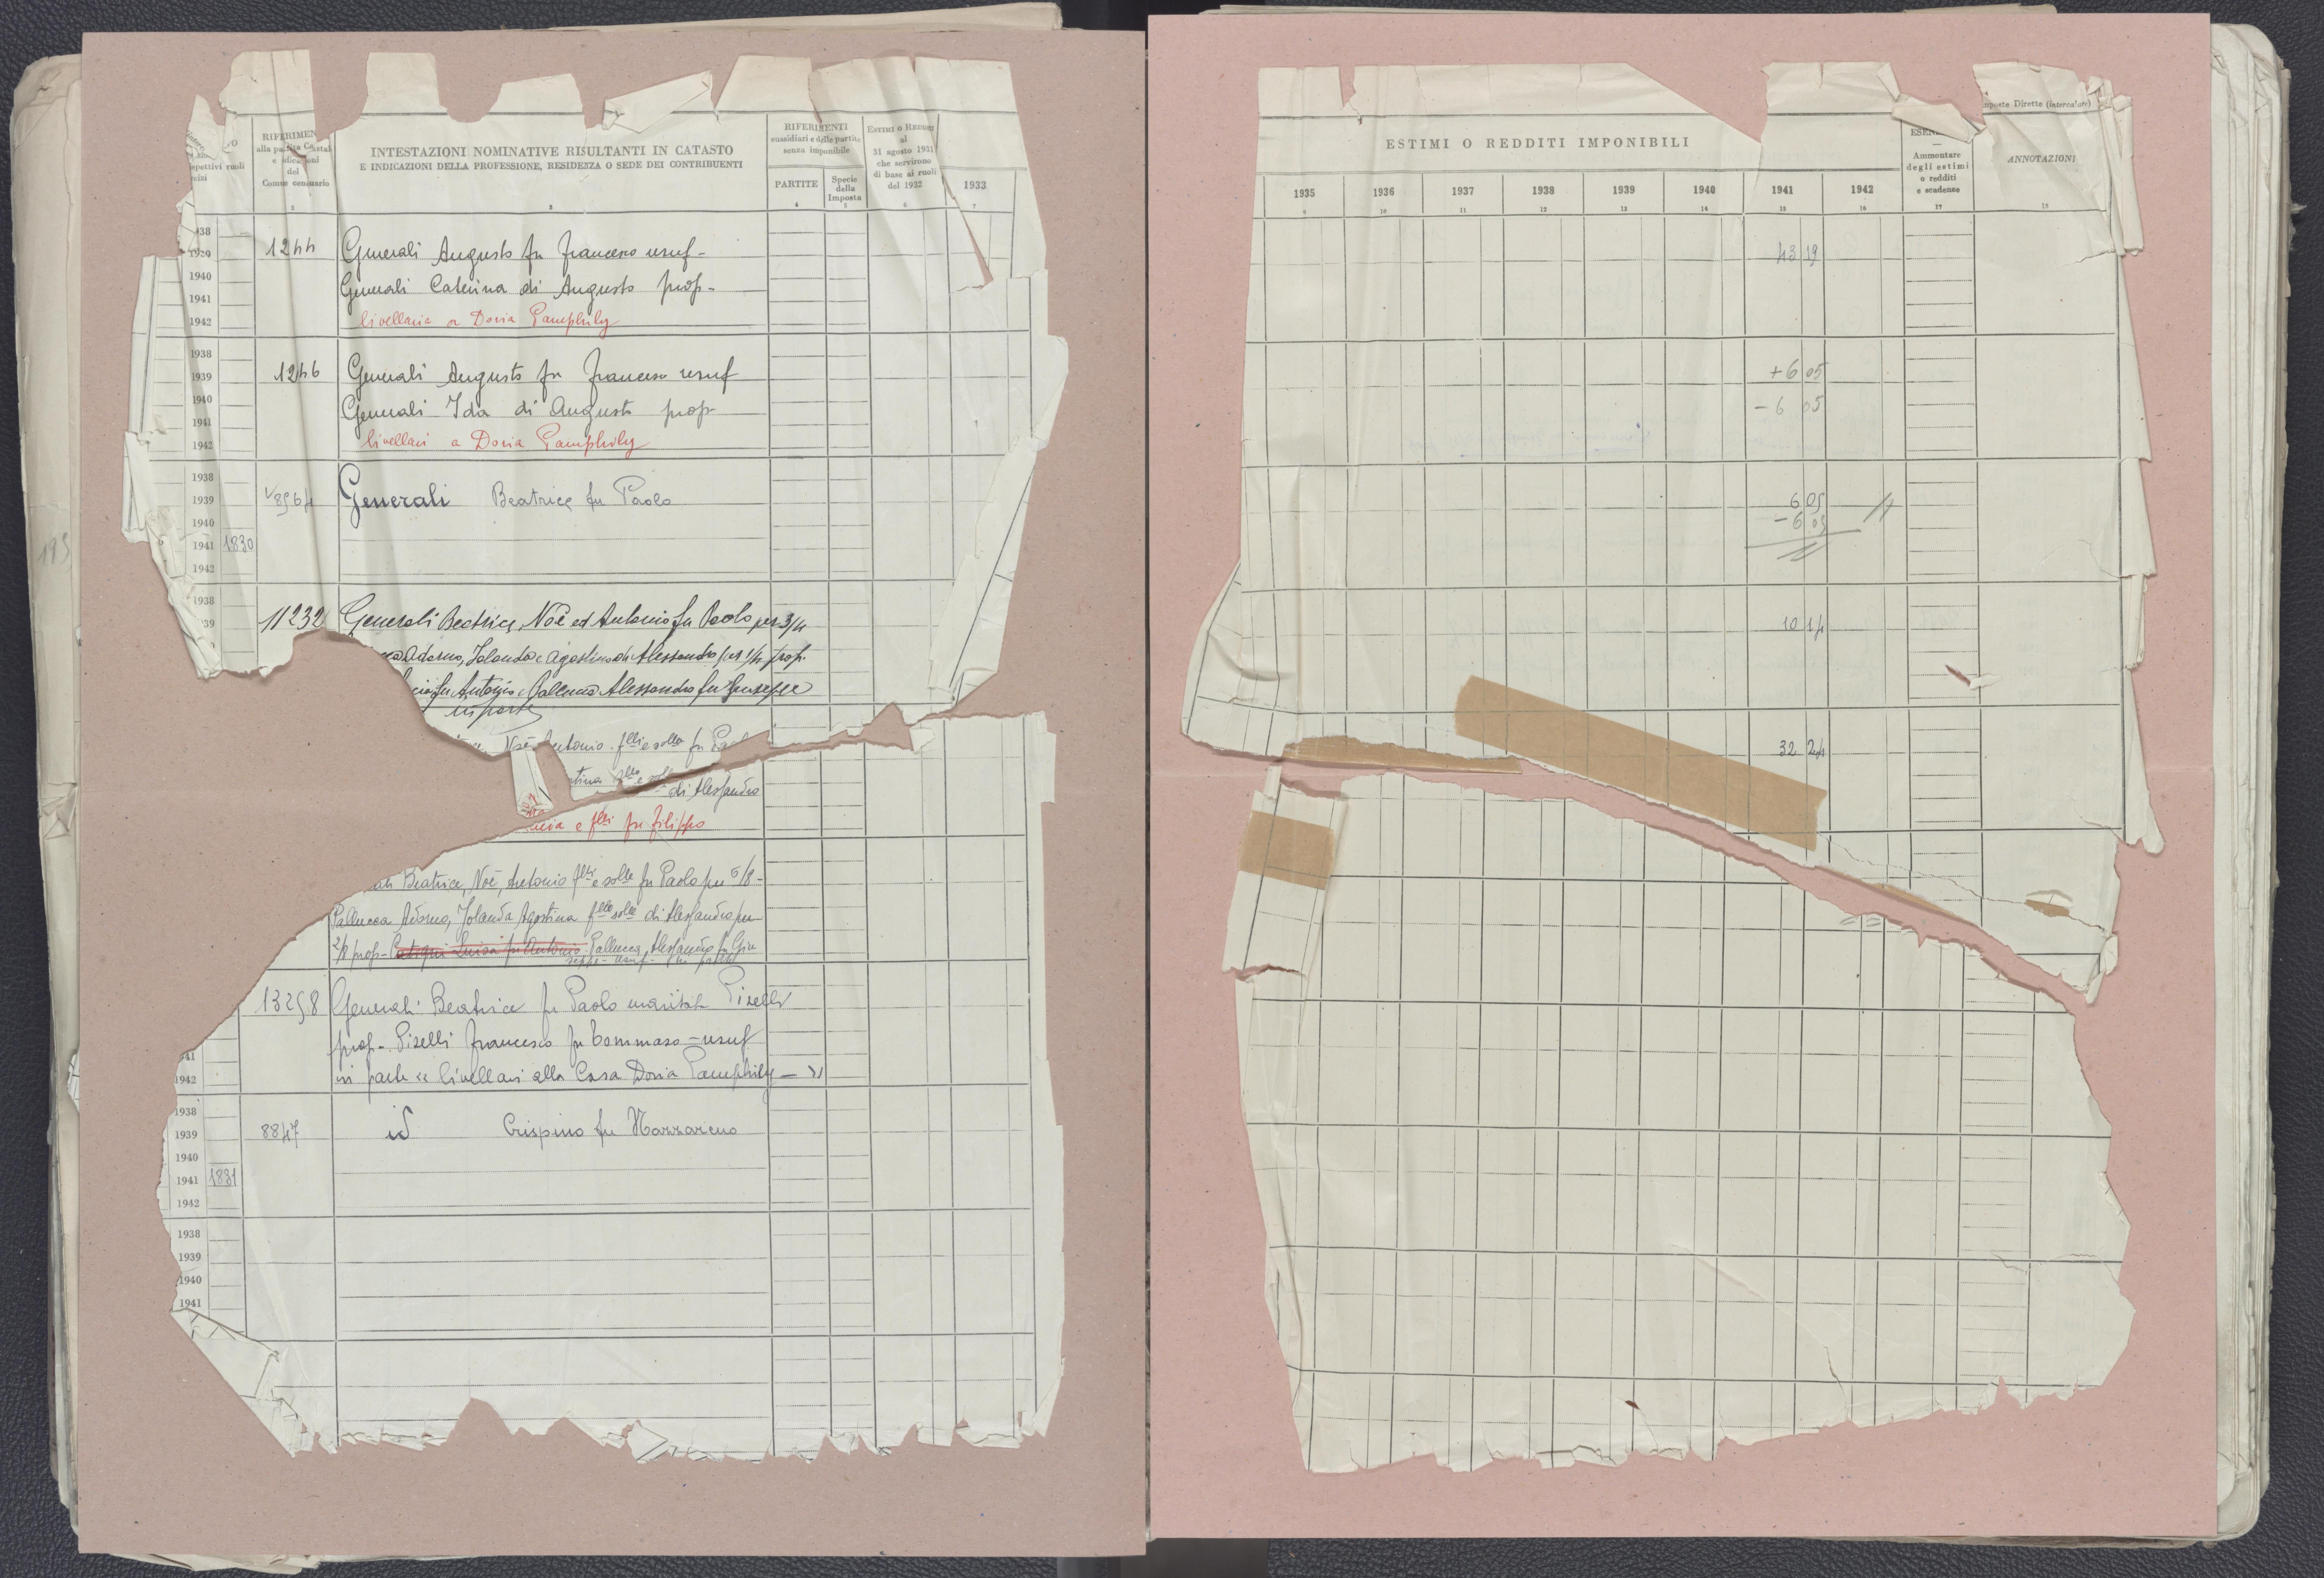 RIFERIMEN
alla partita Catastal
e indicazioni
del
Comune censuario
2
spettivi ruoli
INTESTAZIONI NOMINATIVE RISULTANTI IN CATASTO
E INDICAZIONI DELLA PROFESSIONE, RESIDENZA O SEDE DEI CONTRIBUENTI
3
RIFERIMENTI
sussidiari e delle partite
senza imponibile
PARTITE
4
Specie
della
Imposta
5
ESTIMI O REDDITI
al
31 agosto 1931
che servirono
di base ai ruoli
del 1932
6
1933
7
38
1939
1940
1941
1942
1244
Generali Augusto fu Francesco usuf-
Generali Caterina di Augusto prop-
livellaria a Doria Pamphily
1938
1939
1940
1941
1942
1246
Generali Augusto fu Francesco usuf
Generali Ida di Augusto prop-
livellari a Doria Pamphily
1938
1939
1940
1941 1830
1942
8964
Generali Beatrice fu Paolo
1938
39
11232
Generali Beatrice, Noè ed Antonio fu Paolo per 3/4
Adorno, Jolanda e Agostino di Alessandro per 1/4 prop.
fu Antonio e Pallucca Alessandro fu Giuseppe
in parte
Noè Antonio flli e solla fu
di Alessandro
e flli fu Filippo
Beatrice, Noè, Antonio flli e solle fu Paolo per 6/8-
Pallucca Adorno, Jolanda Agostina flle solle di Alessandro per
2/8 prop- Luisa fu Antonio Pallucca Alessandro fu Giu
seppe- usuf- in parte
13298
Generali Beatrice fu Paolo maritata Piselli
prop- Piselli Francesco fu Tommaso - usuf
in parte "livellari alla Casa Doria Pamphily - "
41
1942
1938
1939
1940
1941 1831
1942
8847
id Crispino fu Nazzareno
1938
1939
1940
1941
ESTIMI O REDDITI IMPONIBILI
1935
9
1936
10
1937
11
1938
12
1939
13
1940
14
1941
15
1942
16
Ammontare
degli estimi
o redditi
e scadenze
17
mposte Dirette (intercalare)
ANNOTAZIONI
18
43 19
+6 05
-6 05
6 05
-6 05
10 14
32 24